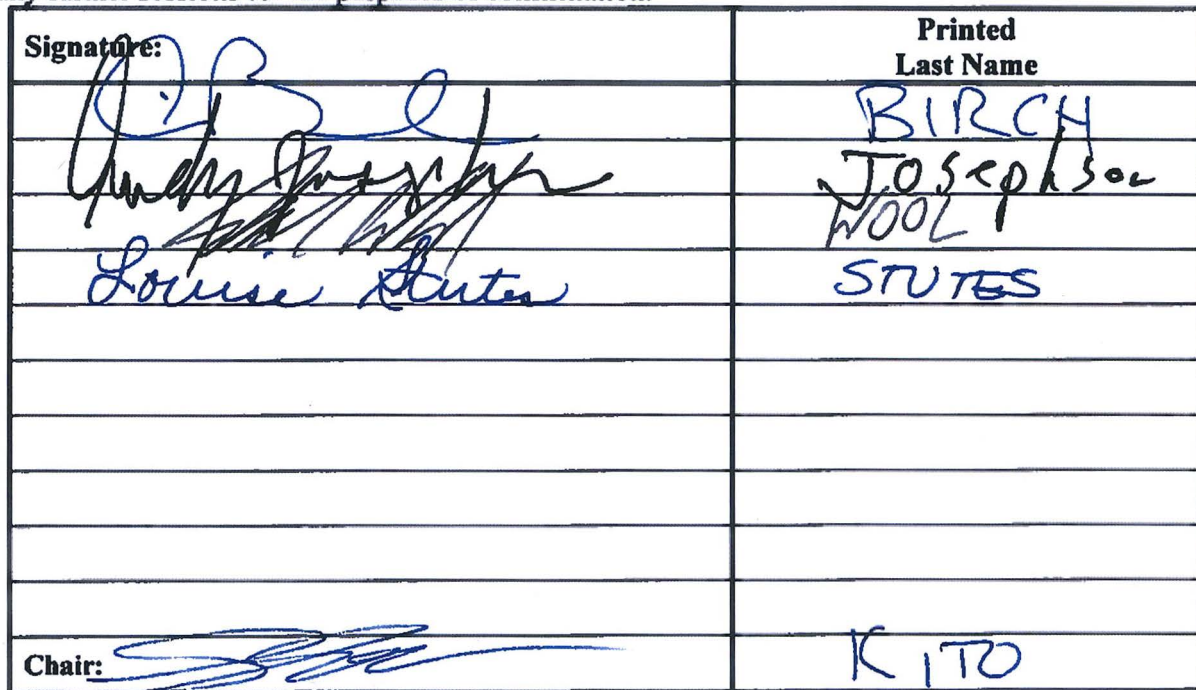 Signature: Printed
Last Name
BIRCH
Andy Josephson Josephson
WOOL
Louise Stutes STUTES
Chair: KITO